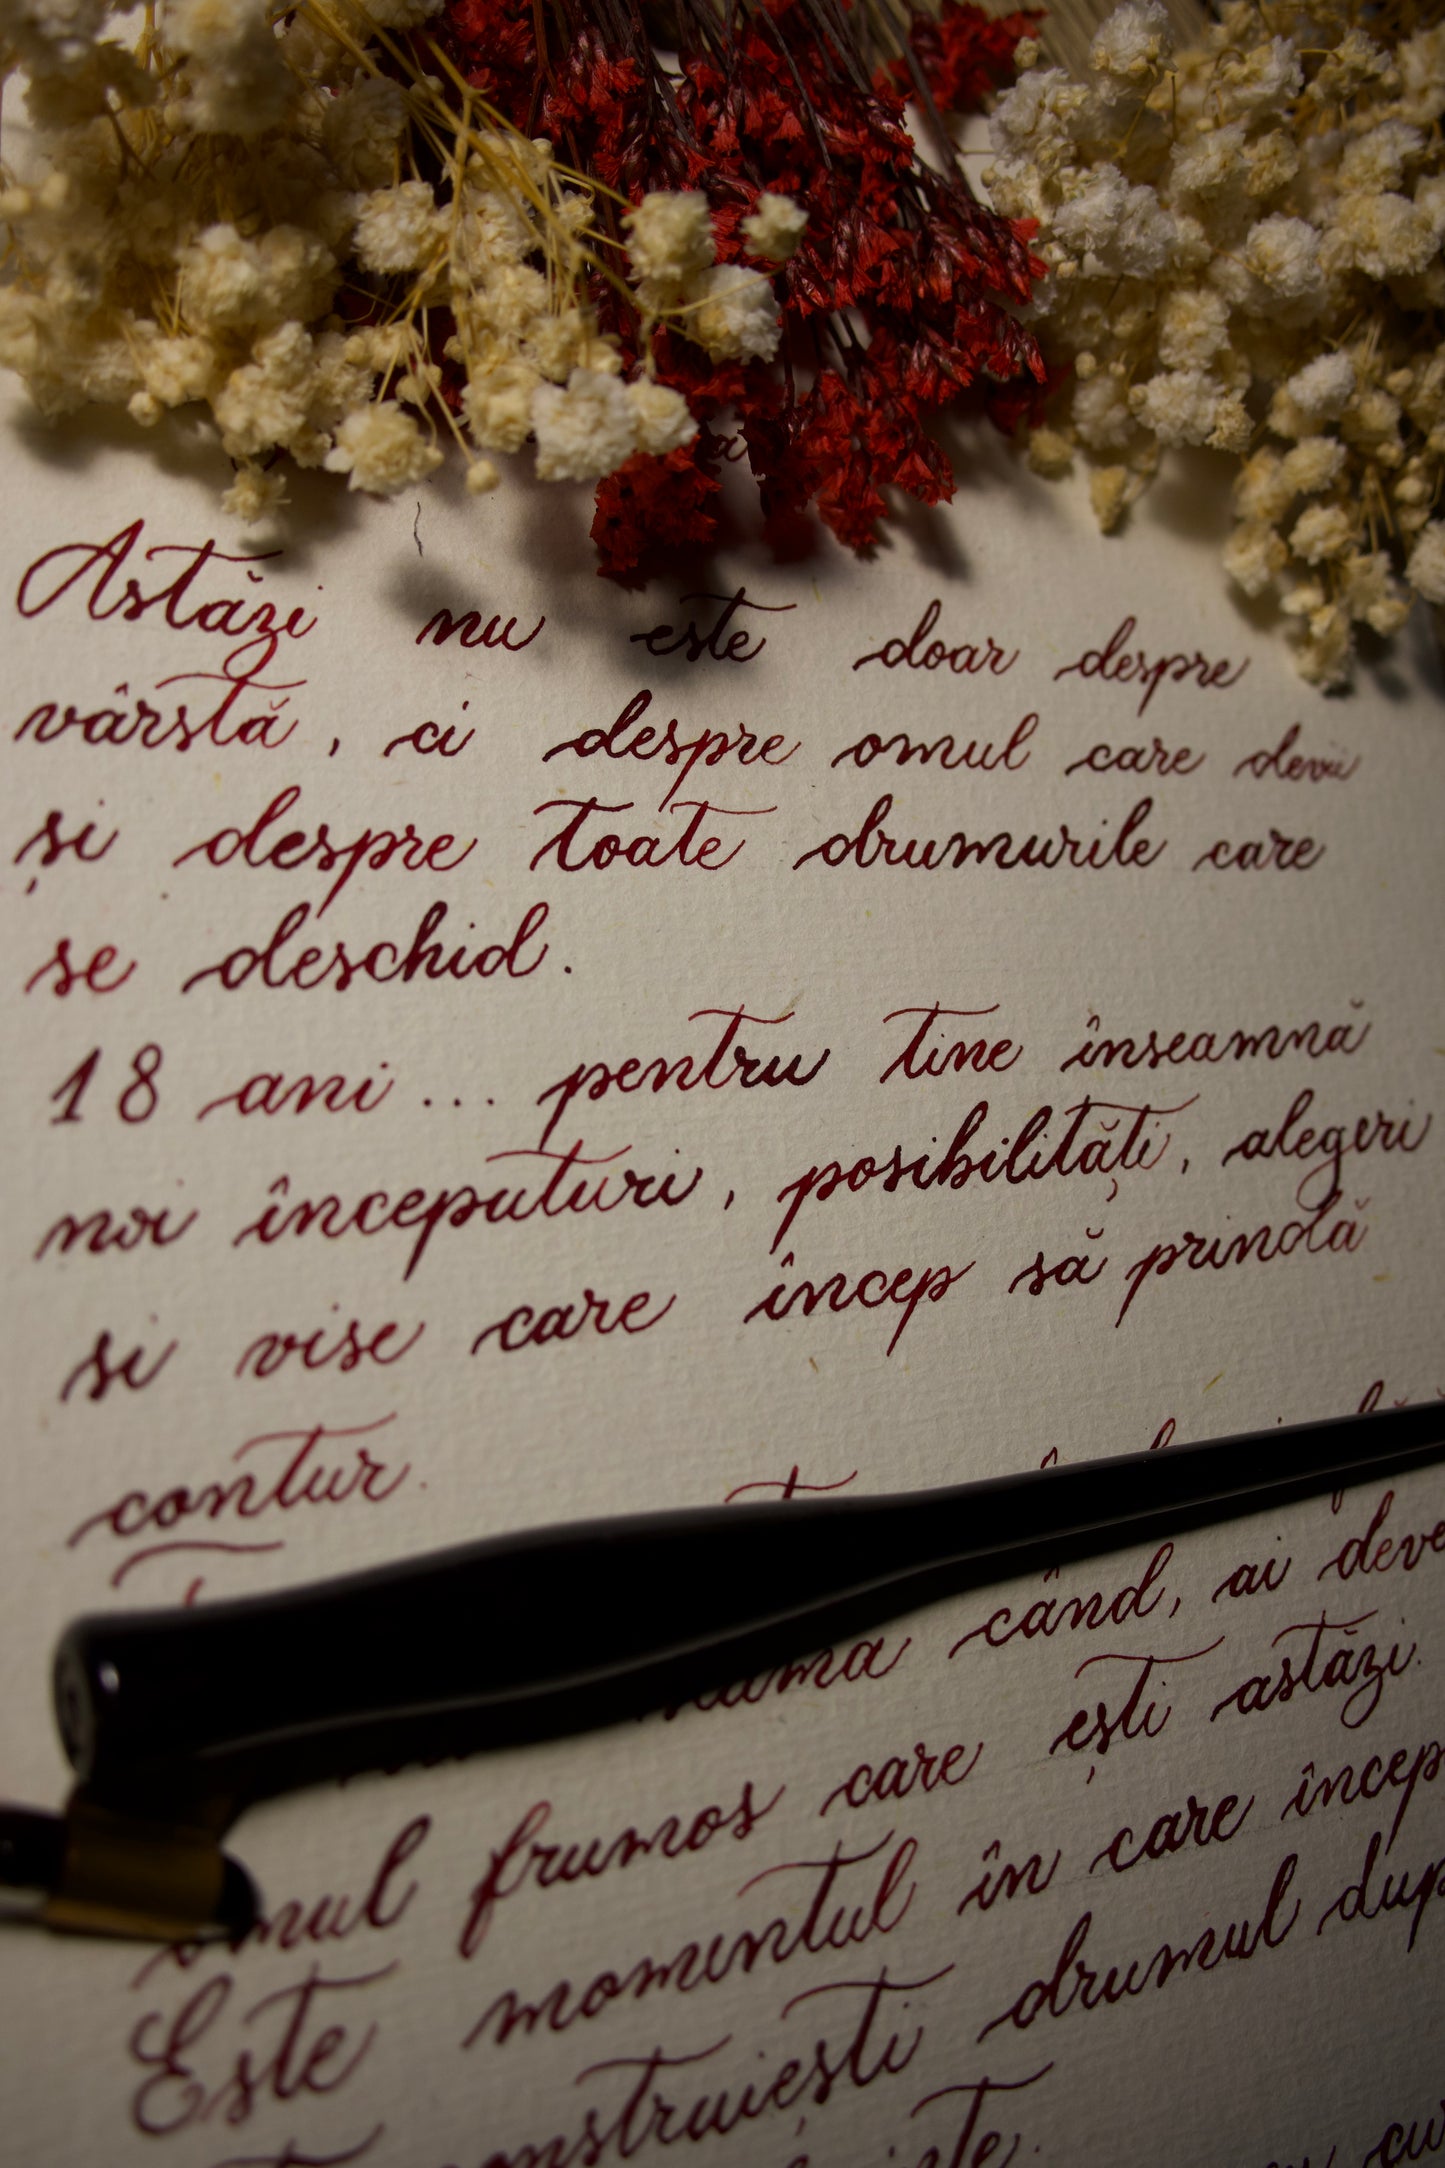 Astăzi nu este doar despre
vârstă, ci despre omul care devii
și despre toate drumurile care
se deschid.
18 ani... pentru tine înseamnă
noi începuturi, posibilități, alegeri
si vise care încep să prindă
contur.
când, ai deve
omul frumos care ești astăzi.
Este momentul în care încep
construiești drumul dup